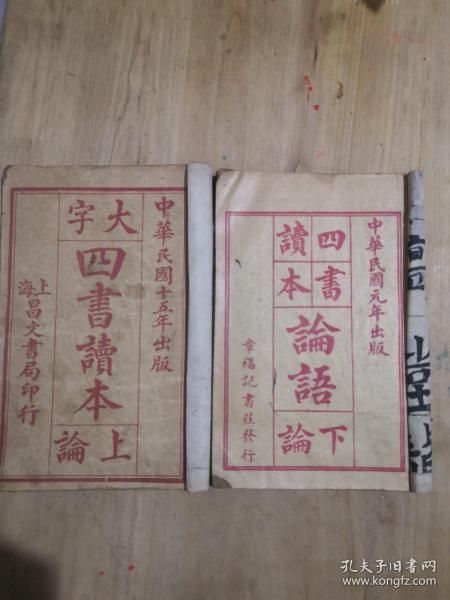 中華民國十五年出版
大字
四書讀本
上論
上海昌文書局印行
中華民國元年出版
四書讀本
論語
下論
章福記書莊發行
孔夫子旧书网
www.kongfz.com